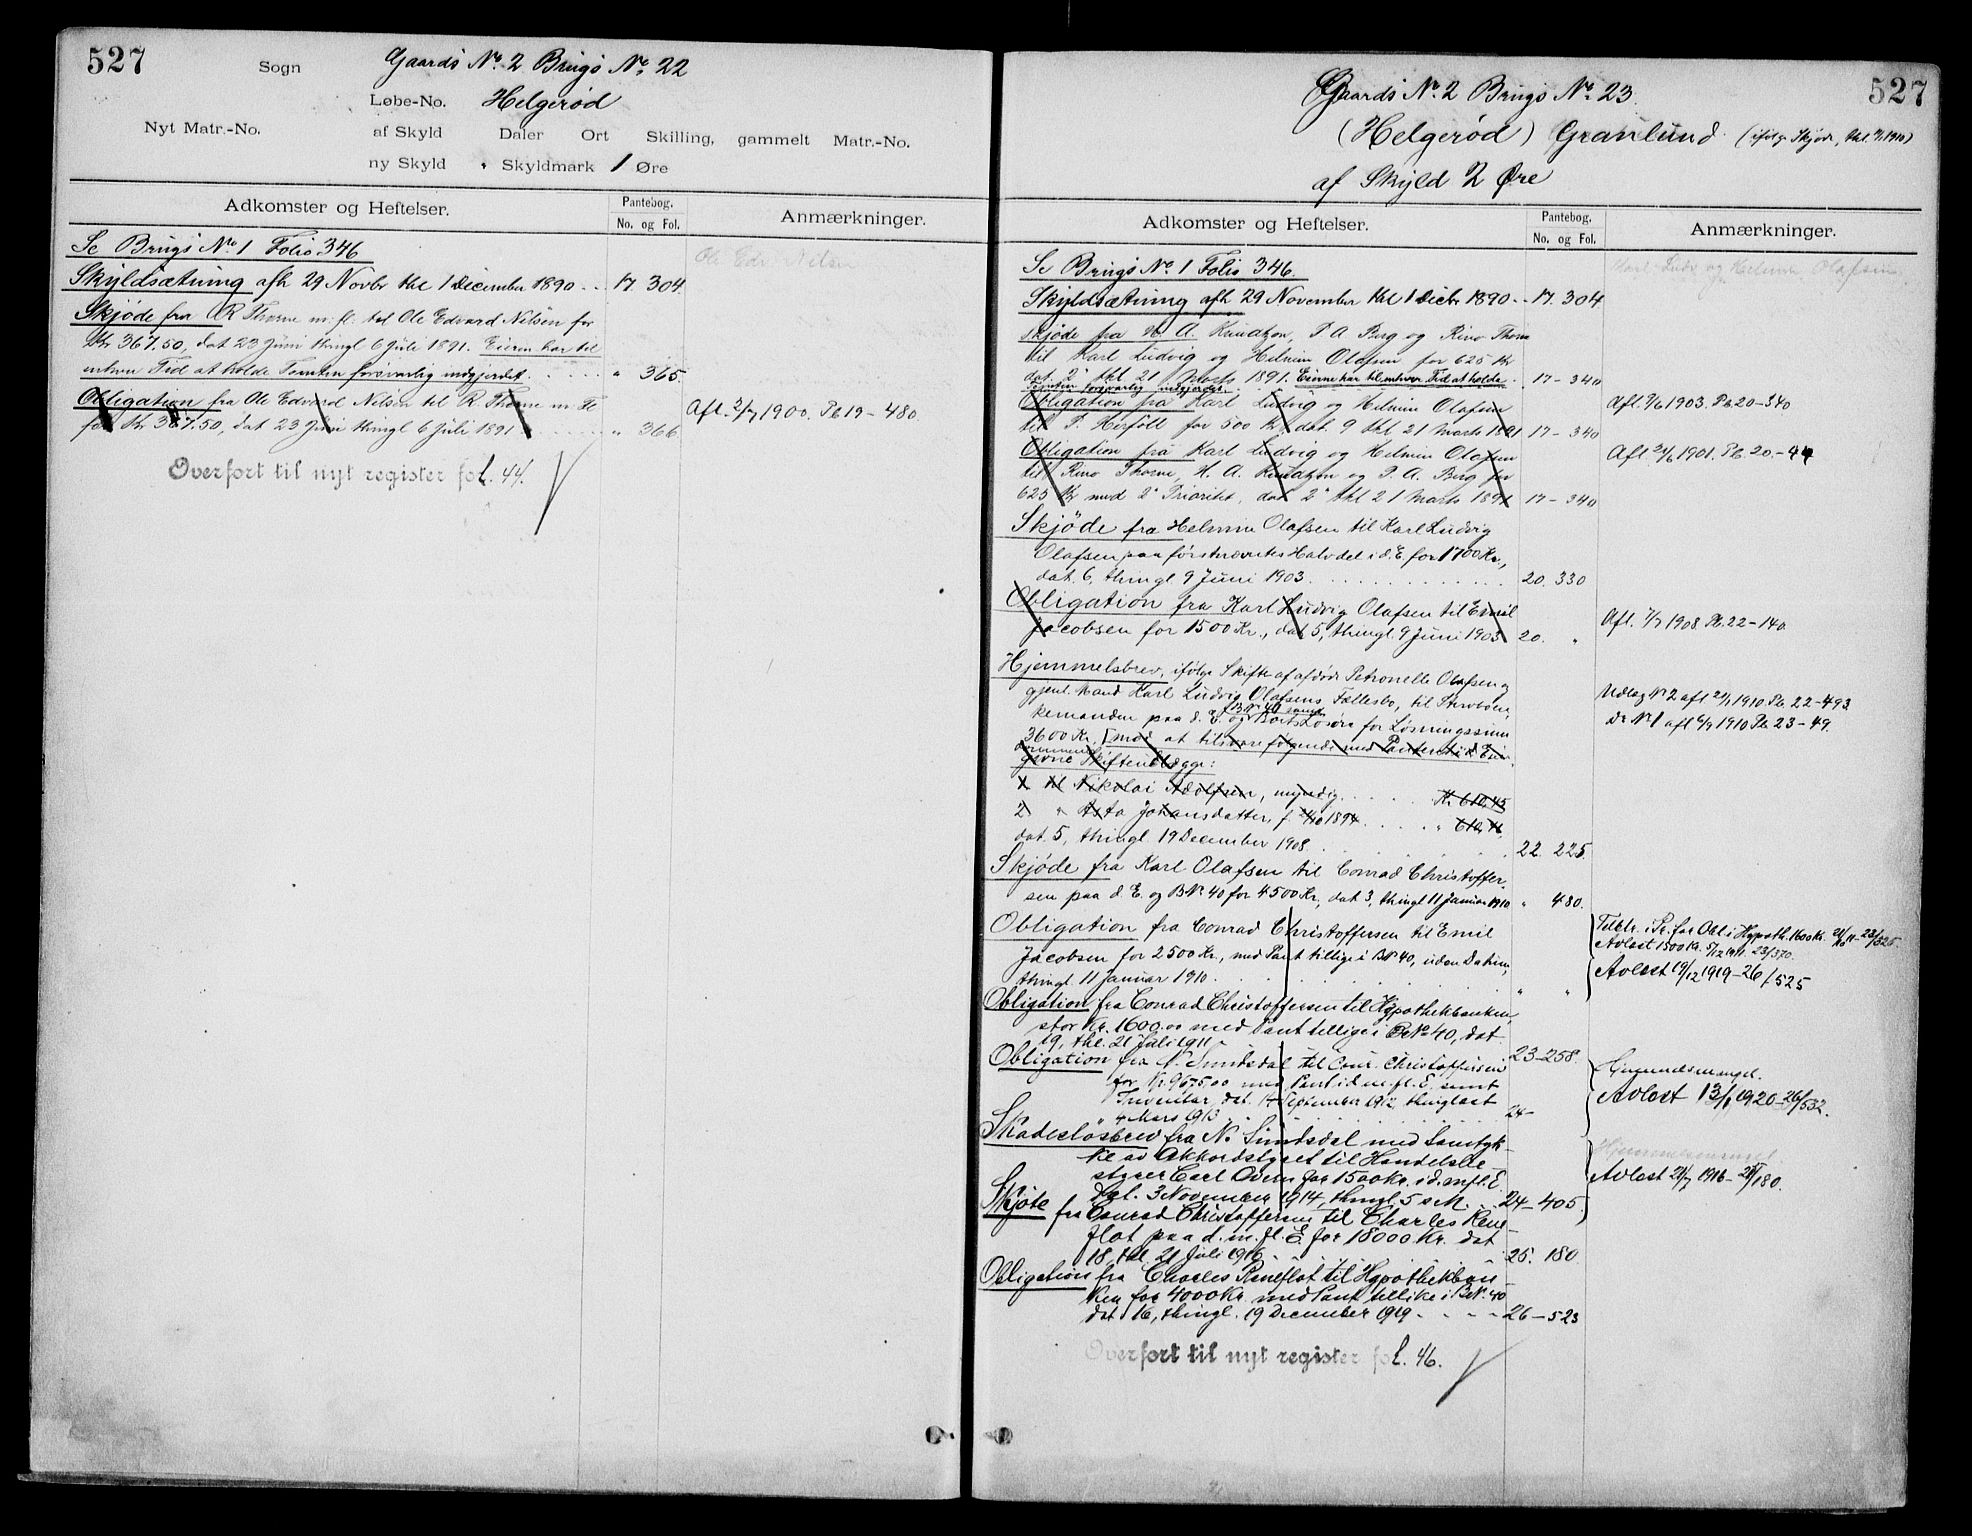 527
Sogn
Gaards No. 2 Brugs No. 22
Løbe-No. Helgerød
Nyt Matr.-No.
af Skyld Daler Ort Skilling, gammelt Matr.-No.
ny Skyld " Skyldmark 1 Øre
Adkomster og Heftelser.
Pantebog.
No. og Fol.
Anmærkninger.
Se Brugs No. 1 Folio 346
Ole Edv. Nilsen
Skyldsætning afh 29 Novbr thl 1 December 1890 . . 17. 304.
Skjøde fra R Thorne m. fl. til Ole Edvard Nilsen for
Kr 367.50, dat 23 Juni thingl 6 Juli 1891. Eieren har til
enhver Tid at holde Tomten forsvarlig indgjerdet. . . . " 365.
Obligation fra Ole Edvard Nilsen til R Thorne m Fl
for Kr 367.50, dat 23 Juni thingl 6 Juli 1891 . . . " 366
Afl. 2/7 1900. Pb 19 - 480.
Overført til nyt register fol. 44.
527
Gaards No. 2 Brugs No. 23
(Helgerød) Granlund (ifølge Skjøde, thl. 11/1 1910)
af Skyld 2 Øre
Adkomster og Heftelser.
Pantebog.
No. og Fol.
Anmærkninger.
Se Brugs No. 1 Folio 346.
Karl Ludv og Helmin Olafsen
Skyldsætning afh 29 November thl 1 Decbr 1890 . . 17. 304.
Skjøde fra H. A. Knudtzon, P A Berg og Rino Thorne
til Karl Ludvig og Helmin Olafsen for 625 Kr
dat. 2 thl 21 Marts 1891. Eierne har til enhver Tid at holde . 17 - 340
Tomten forsvarlig indgjerdet.
Obligation fra Karl Ludvig og Helmin Olafsen
Afl. 9/6 1903. Pb. 20 - 340
til P. Herföll for 500 Kr. dat. 9 thl 21 Marts 1891 17 - 340
Obligation fra Karl Ludvig og Helmin Olafsen
Afl 24/6 1901. Pb. 20. - 44
til Rino Thorne, H. A. Knudtzon og P. A. Berg for
625 Kr med 2 Prioritet, dat 2 thl 21 Marts 1891 17 - 340
Skjöde fra Helmin Olafsen til Karl Ludvig
Olafsen paa førstnævntes Halvdel i d. E. for 1700 Kr.,
dat. 6, thingl 9 Juni 1903 . . . 20. 330
Obligation fra Karl Ludvig Olafsen til Emil
Jacobsen for 1500 Kr., dat. 5, thingl. 9 Juni 1903 20. "
Afl. 7/7 1908 Pb. 22 - 140.
Hjemmelsbrev, ifølge Skifte af afdøde Petronelle Olafsen og
gjenl. Mand Karl Ludvig Olafsens Fællesbo, til Sterbøen-
kemanden paa d. E. og B No. 40 samt Boets Løsøre for Løsningssum
3600 Kr. mod at tilsvare følgende med Panteret i d. Ei-
givne Skifteudlægge:
1 til Nikolai Adolfsen, myndig . . . Kr. 610,45
2 " Asta Johansdatter, f. 1894 . . . " 610,46
dat. 5, thingl. 19 December 1908 . . . 22. 225
Udlæg No 2 afl 21/1 1910. Pb 22 - 493
Do No 1 afl 6/9 1910 Pb 23 - 49.
Skjøde fra Karl Olafsen til Conrad Christoffer-
sen paa d. E. og B No 40 for 4500 Kr., dat 3, thingl 11 Januar 1910 " 480.
Obligation fra Conrad Christoffersen til Emil
Jacobsen for 2500 Kr., med Pant tillige i B No 40, uden Datum,
thingl 11 Januar 1910 . . . " "
Avløst 1500 Kr. 5/12 1911. 23/370.
Avløst 19/12 1919 - 26/525
Obligation fra Conrad Christoffersen til Hypothekbanken,
stor Kr. 1600.00 med Pant tillige i B No 40, dat.
19, thl. 21 Juli 1911 . 23 - 258.
Obligation fra N. Sundsdal til Conr. Christoffersen
for Kr 9675.00 med Pant i d. m. fl. E. samt
Inventar, dat. 14 September 1912, thinglæst
4 Mars 1913 . . . 24 -
Hjemmelsmangel.
Avløst 13/1 1920 - 26/532.
Skadesløsbrev fra N. Sundsdal med Samtyk-
ke av Akkordstyret til Handelsbe-
styrer Carl Oven for 1500 Kr. i d. m. fl. E
dat. 3 November 1914, thingl. 5 s. M. . . 24 - 405
Hjemmelsmangel.
Avløst 21/7 1916 - 25/180.
Skjøte fra Conrad Christoffersen til Charles Rene-
flot paa d. m. fl. E. for 18000 Kr. dat
18, thl. 21 Juli 1916. . . 25. 180
Obligation fra Charles Reneflot til Hypothekban-
ken for 4000 Kr. med Pant tillike i B No. 40
dat 16, thingl. 19 December 1919 . . . 26 - 523
Overført til nyt register fol. 46.